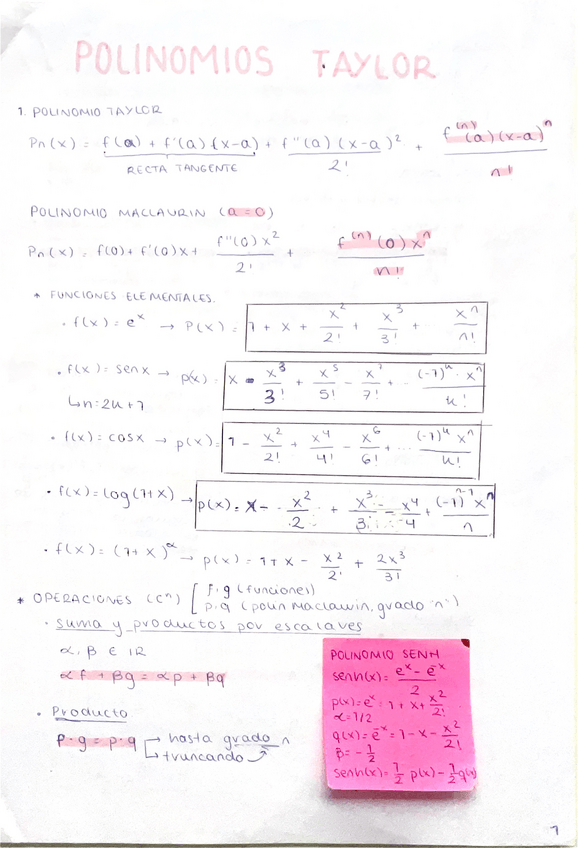 POLINOMIOS TAYLOR
1. POLINOMIO TAYLOR
Pn(x) = f(a) + f'(a)(x-a) + f''(a)(x-a)² / 2! + f⁽ⁿ⁾(a)(x-a)ⁿ / n!
RECTA TANGENTE
POLINOMIO MACLAURIN (a=0)
Pn(x) = f(0) + f'(0)x + f''(0)x² / 2! + f⁽ⁿ⁾(0)xⁿ / n!
* FUNCIONES ELEMENTALES.
· f(x) = eˣ → P(x) = 1 + x + x²/2! + x³/3! + ... xⁿ/n!
· f(x) = sen x → p(x) = x - x³/3! + x⁵/5! - x⁷/7! + ... (-1)ᵏ · xⁿ / k!
↳ n = 2k+1
· f(x) = cos x → p(x) = 1 - x²/2! + x⁴/4! - x⁶/6! + ... (-1)ᵏ xⁿ / k!
· f(x) = log(1+x) → p(x) = x - x²/2 + x³/3 - x⁴/4 + (-1)ⁿ⁻¹ xⁿ / n
· f(x) = (1+x)^α → p(x) = 1 + x - x²/2! + 2x³/3!
* OPERACIONES (Cⁿ) [ f·g (funciones)
p·q (polin Maclaurin, grado "n")
· suma y productos por escalares
α, β ∈ IR
αf + βg = αp + βq
· Producto
f·g = p·q → hasta grado n
→ truncando
POLINOMIO SENH
senh(x) = eˣ - e⁻ˣ / 2
p(x) = eˣ = 1 + x + x²/2!
α = 1/2
q(x) = e⁻ˣ = 1 - x - x²/2!
β = - 1/2
senh(x) = 1/2 p(x) - 1/2 q(x)
1